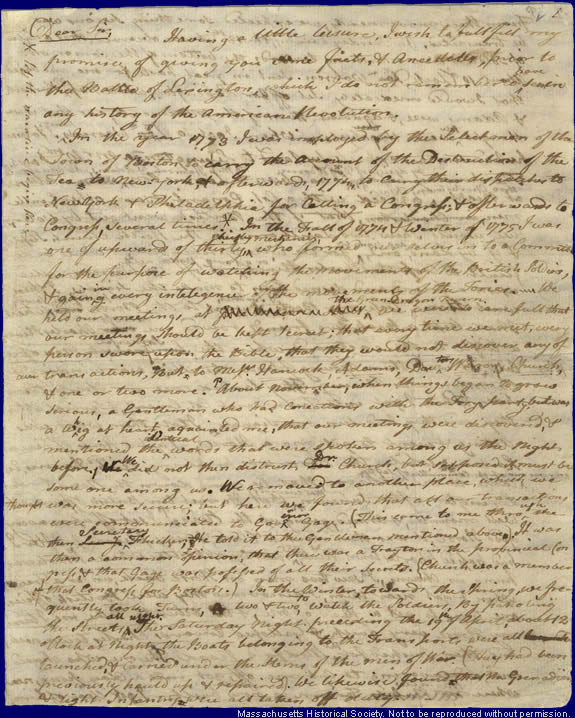 Dear Sir,
Having a little leisure, I wish to fullfill my
promise of giving you some facts, & Anecdotes, prior to
the Battle of Lexington, which I do not remember to have seen in
any history of the American Revolution.
In the year 1773 I was imployed by the Selectmen of the
Town of Boston to carry the Account of the Destruction of the
Tea to New-York; & afterwards, 1774, to carry their dispatches to
New-York & Philadelphia for Calling a Congress; & afterwards to
Congress, several times. X In the Fall of 1774 & Winter of 1775 I was
one of upwards of thirty, cheifly mechanics, who formed our selves in to a Committee
for the purpose of watching the movements of the British Soldiers,
& gaining every intelegence of the movements of the Tories. We
held our meetings at the Green Dragon Tavern. We were so carefull that
our meetings should be kept Secret; that every time we met, every
person swore upon the Bible, that they would not discover any of
our transactions, But to Messrs Hancock, Adams, Doctrs Warren, Church,
& one or two more. About November, when things began to grow
Serious, a Gentleman who had Conections with the Tory party, but was
a Whig at heart, acquainted me, that our meetings were discovered, &
mentioned the identical words that were spoken among us the Night
before. We did not then distrust Dr. Church, but supposed it must be
some one among us. We removed to another place, which we
thought was more secure; but here we found that all our transactions
were communicated to Govenor Gage. (This came to me through the
then Secretary Flucker; He told it to the Gentleman mentioned above). It was
then a common opinion, that there was a Traytor in the provincial Con-
gress, & that Gage was possessed of all their Secrets. (Church was a member
of that Congress for Boston.) In the Winter, towards the Spring, we fre-
quently took Turns, two & two, to Watch the Soldiers, By patroling
the Streets all night. The Saturday Night preceding the 19th of April, about 12
oClock at Night, the Boats belonging to the Transports were all
launched, & carried under the Sterns of the Men of War. (They had been
previously hauld up & repaired). We likewise found that the Grenadiers
& light Infantry were all taken off duty.
Massachusetts Historical Society. Not to be reproduced without permission.